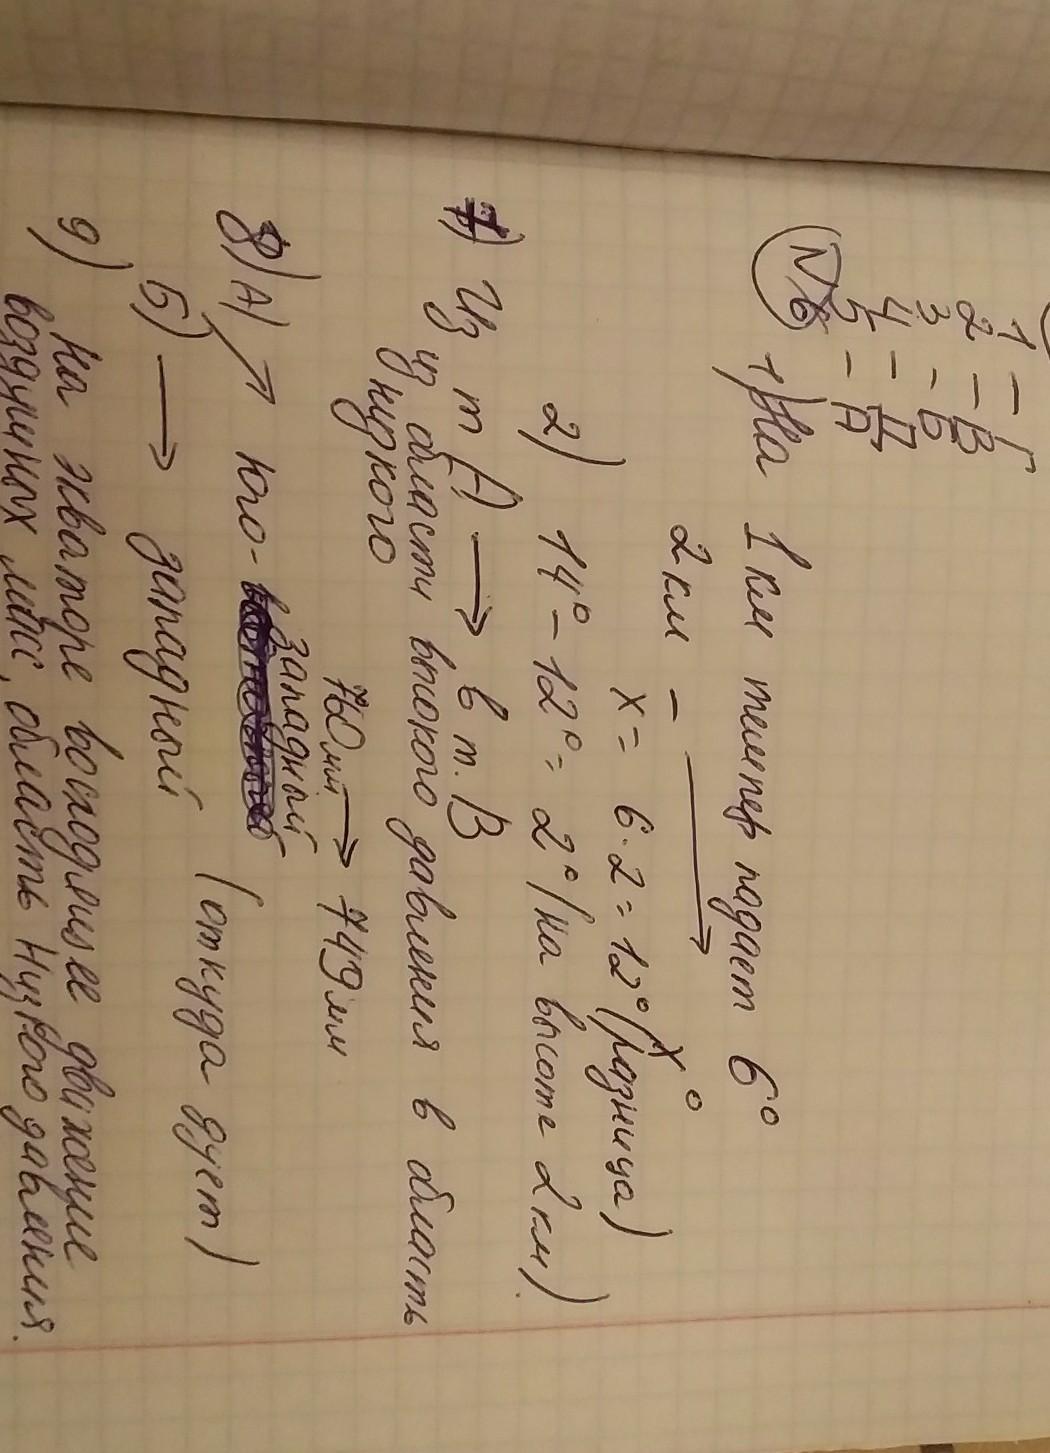 1 – Г
2 – В
3 – Б
4 – Д
5 – А
№6 1) На 1 км темпер падает 6°
2 км – → х°
х = 6·2 = 12° (разница)
2) 14° – 12° = 2° (на высоте 2 км).
7) Из т А → в т. В
из области высокого давления в область
низкого 760 мм → 749 мм
8) А) ↗ юго-западный
Б) → западный (откуда дует)
9) На экваторе восходящее движение
воздушных масс, область низкого давления.